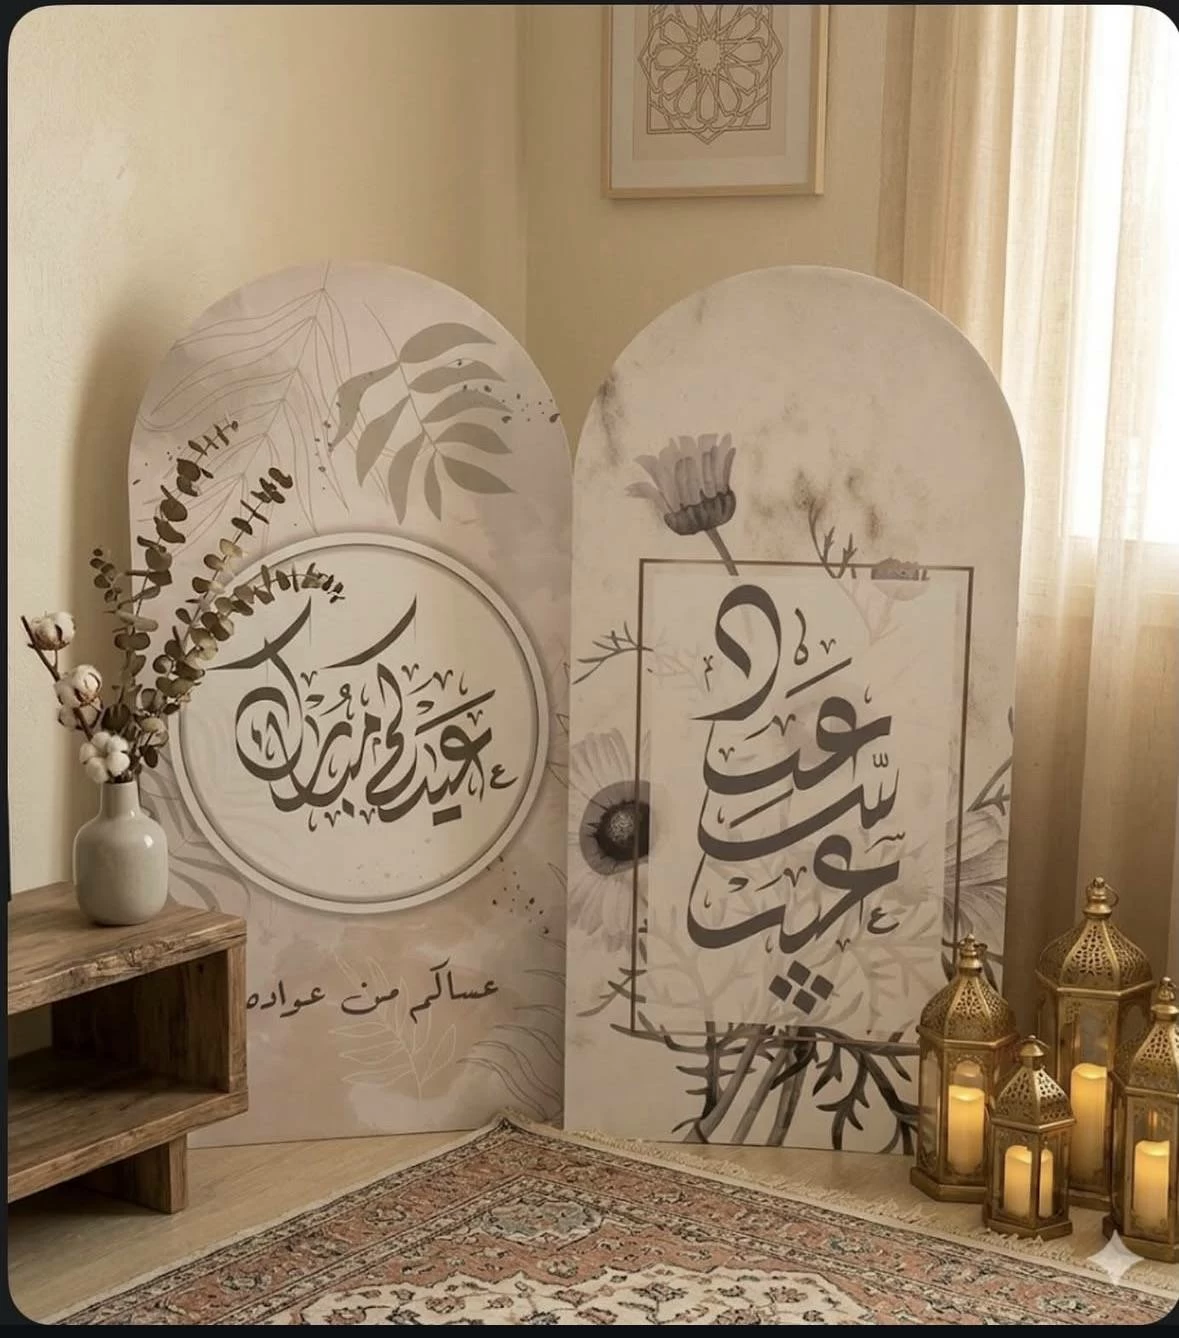 عيدكم مبارك
عساكم من عواده
عيد سعيد